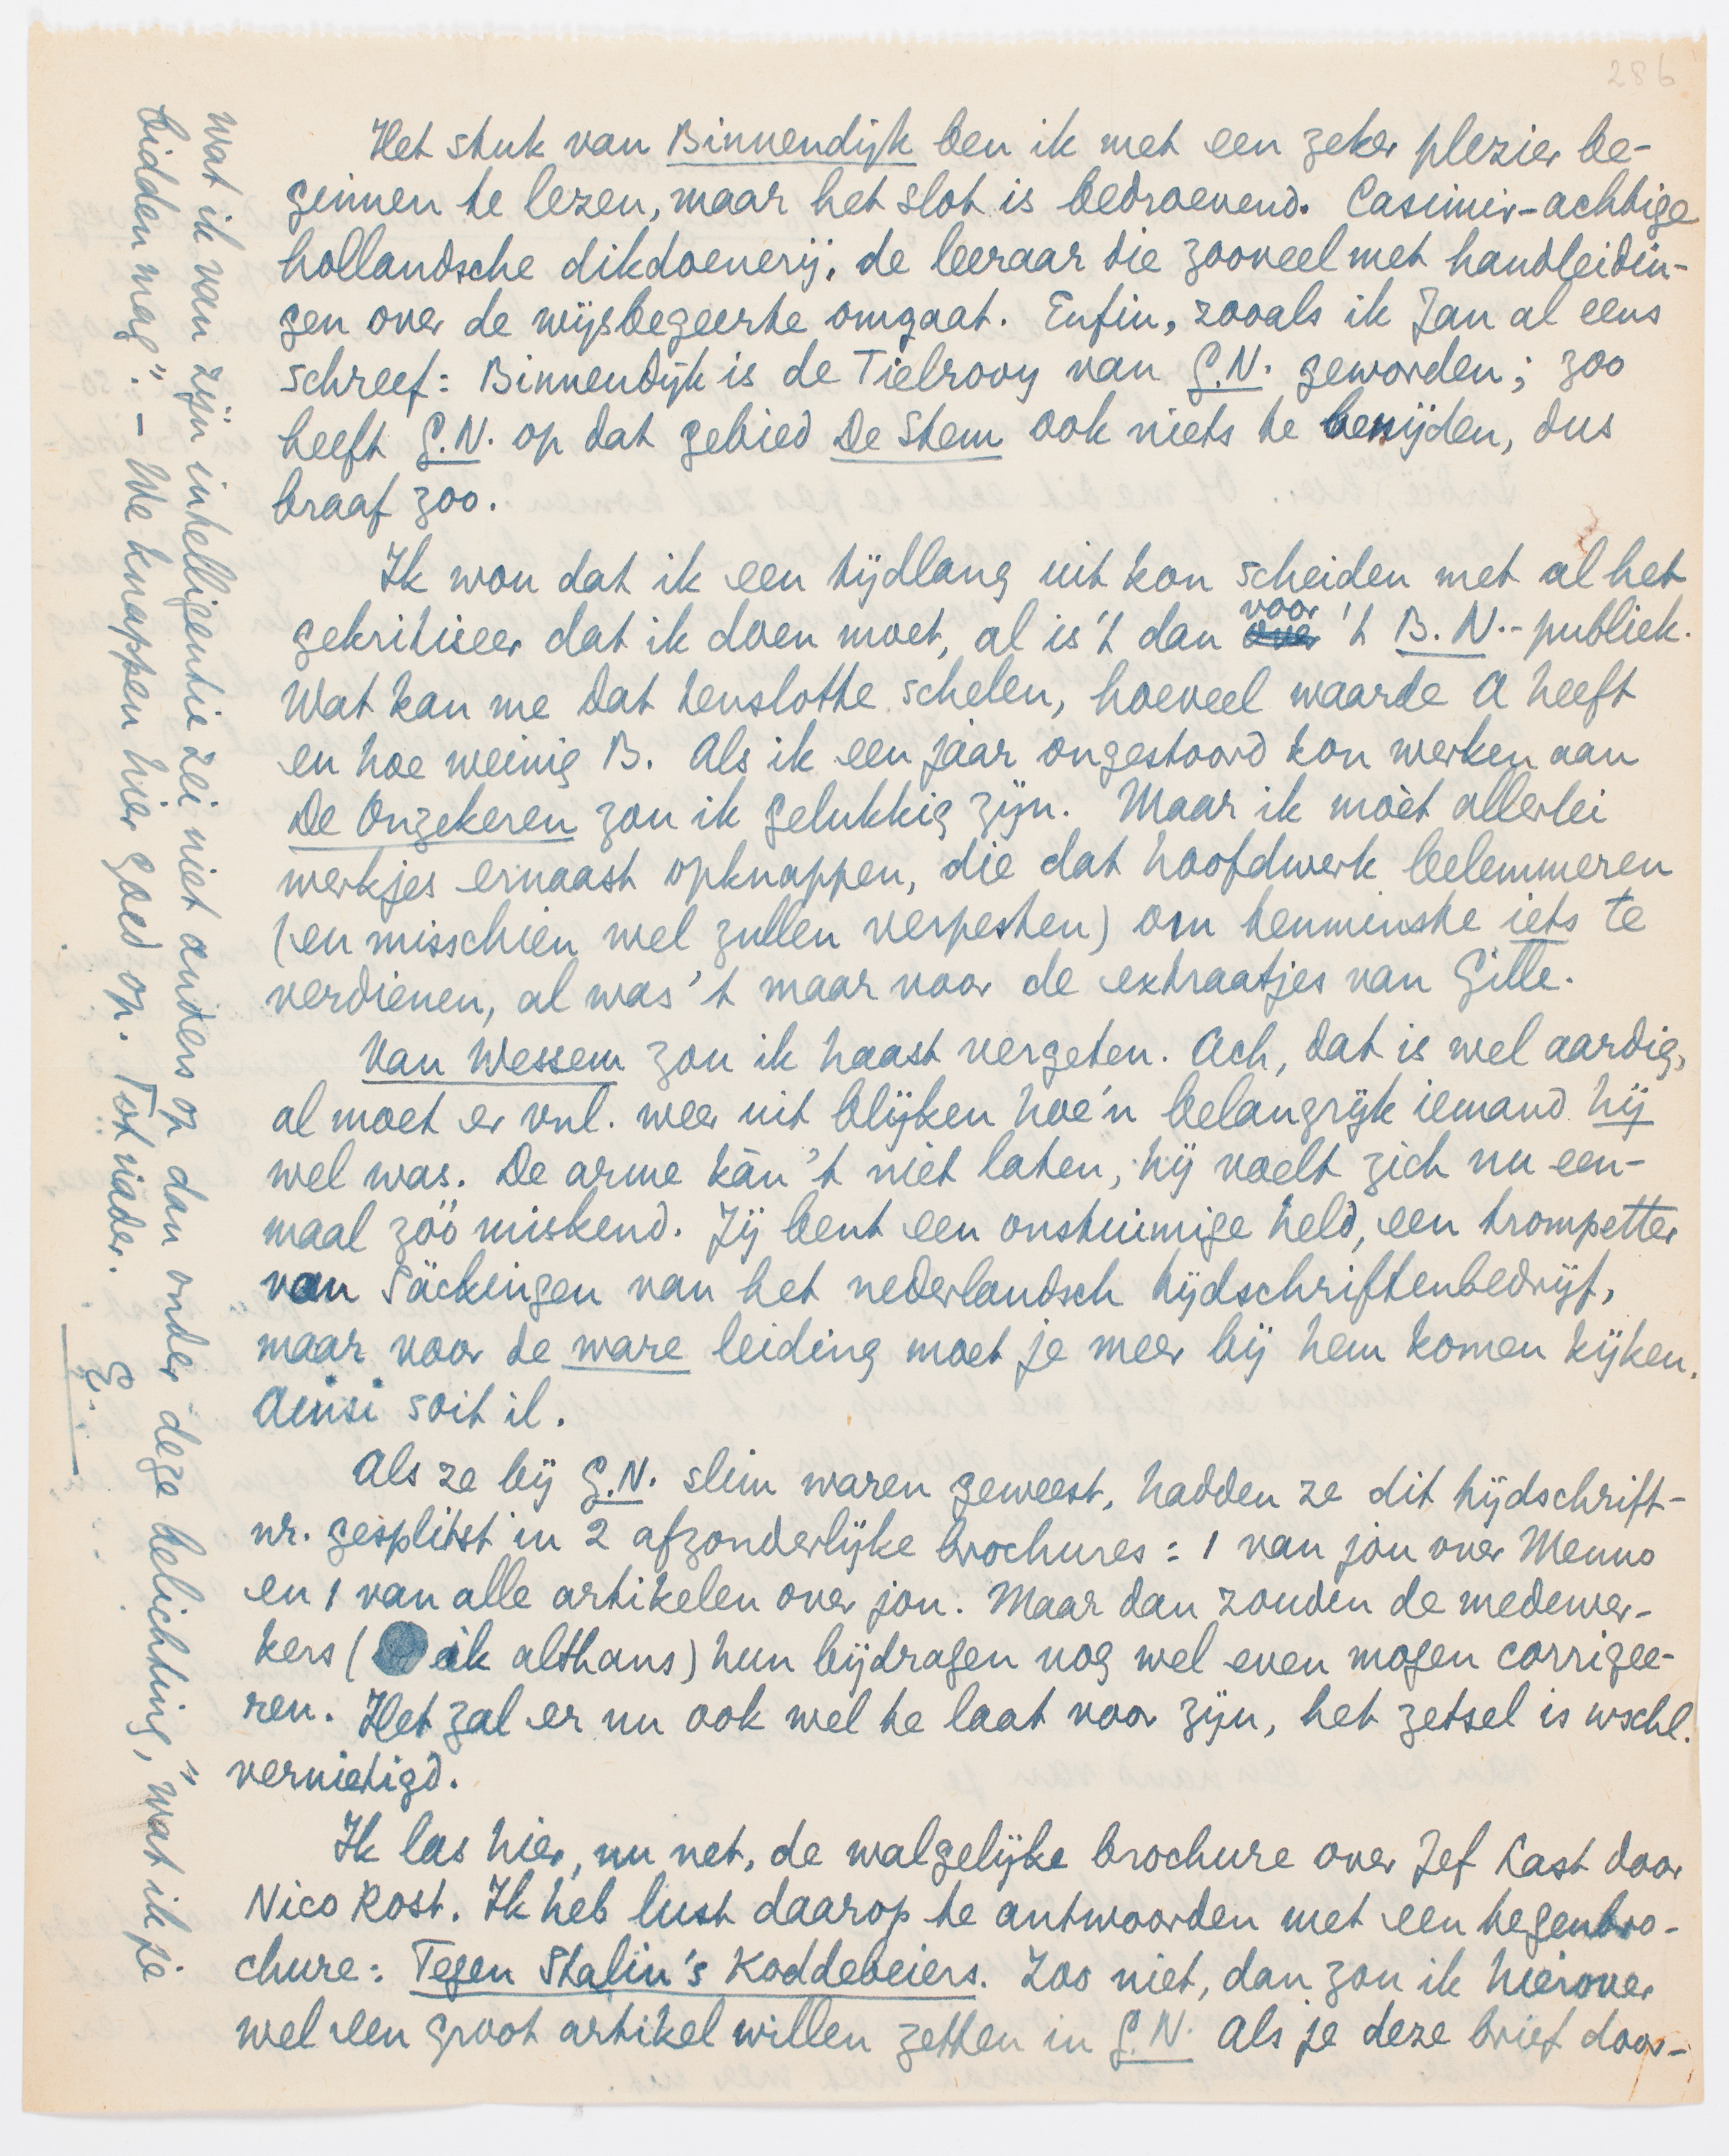 286
Het stuk van Binnendijk ben ik met een zeker plezier be-
ginnen te lezen, maar het slot is bedroevend. Casimir-achtige
hollandsche dikdoenerij, de leeraar die zooveel met handleidin-
gen over de wijsbegeerte omgaat. Enfin, zooals ik Jan al eens
schreef: Binnendijk is de Tielrooy van G.N. geworden; zoo
heeft G.N. op dat gebied De Stem ook niets te benijden, dus
braaf zoo.
Ik wou dat ik een tijdlang uit kon scheiden met al het
gekritiseer dat ik doen moet, al is 't dan voor 't B.N.-publiek.
Wat kan me dat tenslotte schelen, hoeveel waarde A heeft
en hoe weinig B. Als ik een jaar ongestoord kon werken aan
De Onzekeren zou ik gelukkig zijn. Maar ik mòèt allerlei
werkjes ernaast opknappen, die dat hoofdwerk belemmeren
(en misschien wel zullen verpesten) om tenminste iets te
verdienen, al was 't maar voor de extraatjes van Gille.
Van Wessem zou ik haast vergeten. Ach, dat is wel aardig,
al moet er vnl. weer uit blijken hoe'n belangrijk iemand hij
wel was. De arme kàn 't niet laten, hij voelt zich nu een-
maal zóó miskend. Jij bent een onstuimige held, een trompetter
van Säckingen van het nederlandsch tijdschriftenbedrijf,
maar voor de ware leiding moet je meer bij hem komen kijken.
Ainsi soit il.
Als ze bij G.N. slim waren geweest, hadden ze dit tijdschrift-
nr. gesplitst in 2 afzonderlijke brochures: 1 van jou over Menno
en 1 van alle artikelen over jou. Maar dan zouden de medewer-
kers (ik althans) hun bijdragen nog wel even mogen corrigee-
ren. Het zal er nu ook wel te laat voor zijn, het zetsel is wschl.
vernietigd.
Ik las hier, nu net, de walgelijke brochure over Jef Last door
Nico Rost. Ik heb lust daarop te antwoorden met een tegenbro-
chure: Tegen Stalin's Koddebeiers. Zoo niet, dan zou ik hierover
wel een groot artikel willen zetten in G.N. Als je deze brief door-
wat ik van zijn intelligentie zei niet anders op dan onder deze belichting, "wat ik je
bidden mag". – We knappen hier goed op. Tot nader.
E.